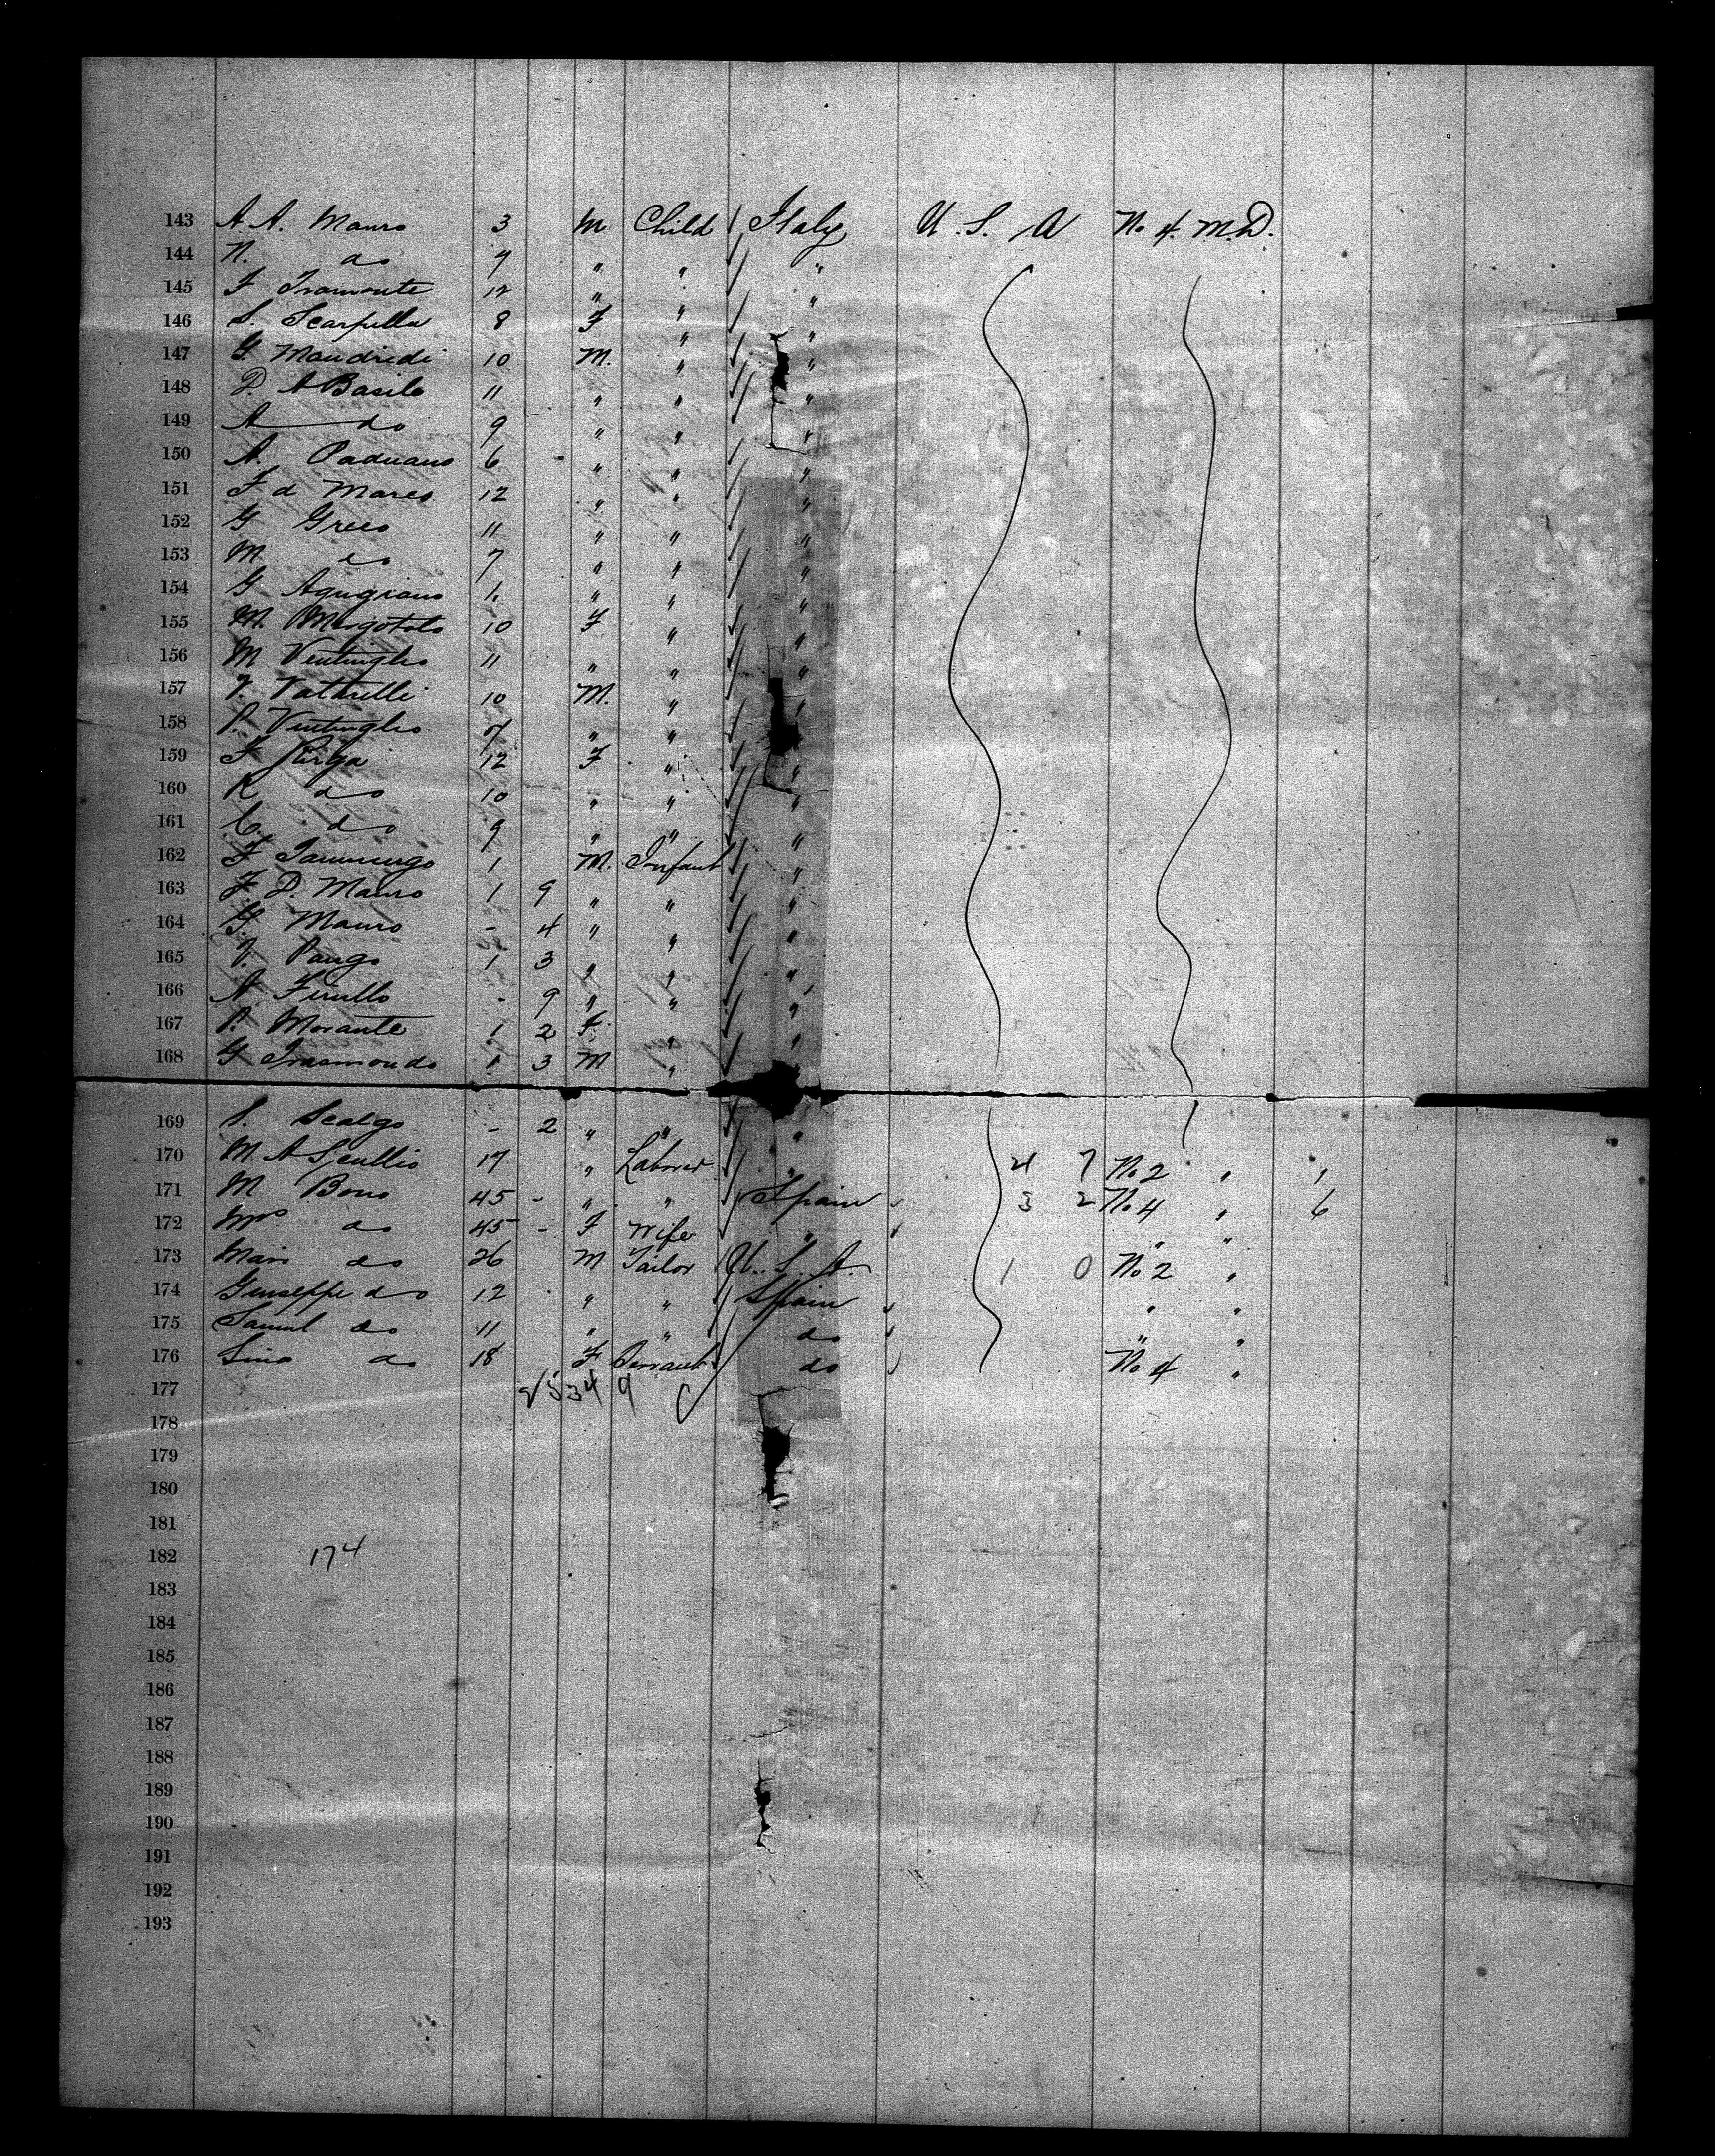 143 A. A. Mauro 3 M Child Italy U. S. A No 4. M.D.
144 N. do 7 " " "
145 F Tramonte 12 " " "
146 S. Scarpella 8 F " "
147 G Mandredi 10 M. " "
148 D. A Basile 11 " " "
149 A do 9 " " "
150 A. Paduano 6 " " "
151 F d Marco 12 " " "
152 G Greco 11 " " "
153 M do 7 " " "
154 G 1. " " "
155 M. 10 F " "
156 M Ventinglio 11 " " "
157 V. 10 M. " "
158 P. Ventinglio 7 " " "
159 F 12 F " "
160 R do 10 " " "
161 C. do 9 " " "
162 F 1 M. Infant "
163 F D. Mauro 1 9 " " "
164 G. Mauro - 4 " " "
165 V. 1 3 " " "
166 A - 9 " " "
167 P. Morante 1 2 F. " "
168 G Trasmondo 1 3 M "
169 S. - 2 " " "
170 M. A 17 " Laborer " 4 7 No 2 " 1
171 M Bono 45 - " " Spain 3 2 No 4 " 6
172 Mrs do 45 - F Wife " " "
173 do 26 M Tailor U. S. A. 1 0 No 2 "
174 Guiseppe do 12 " " Spain " "
175 do 11 " " do " "
176 do 18 F Servant do No 4 "
177
178
179
180
181
182 174
183
184
185
186
187
188
189
190
191
192
193